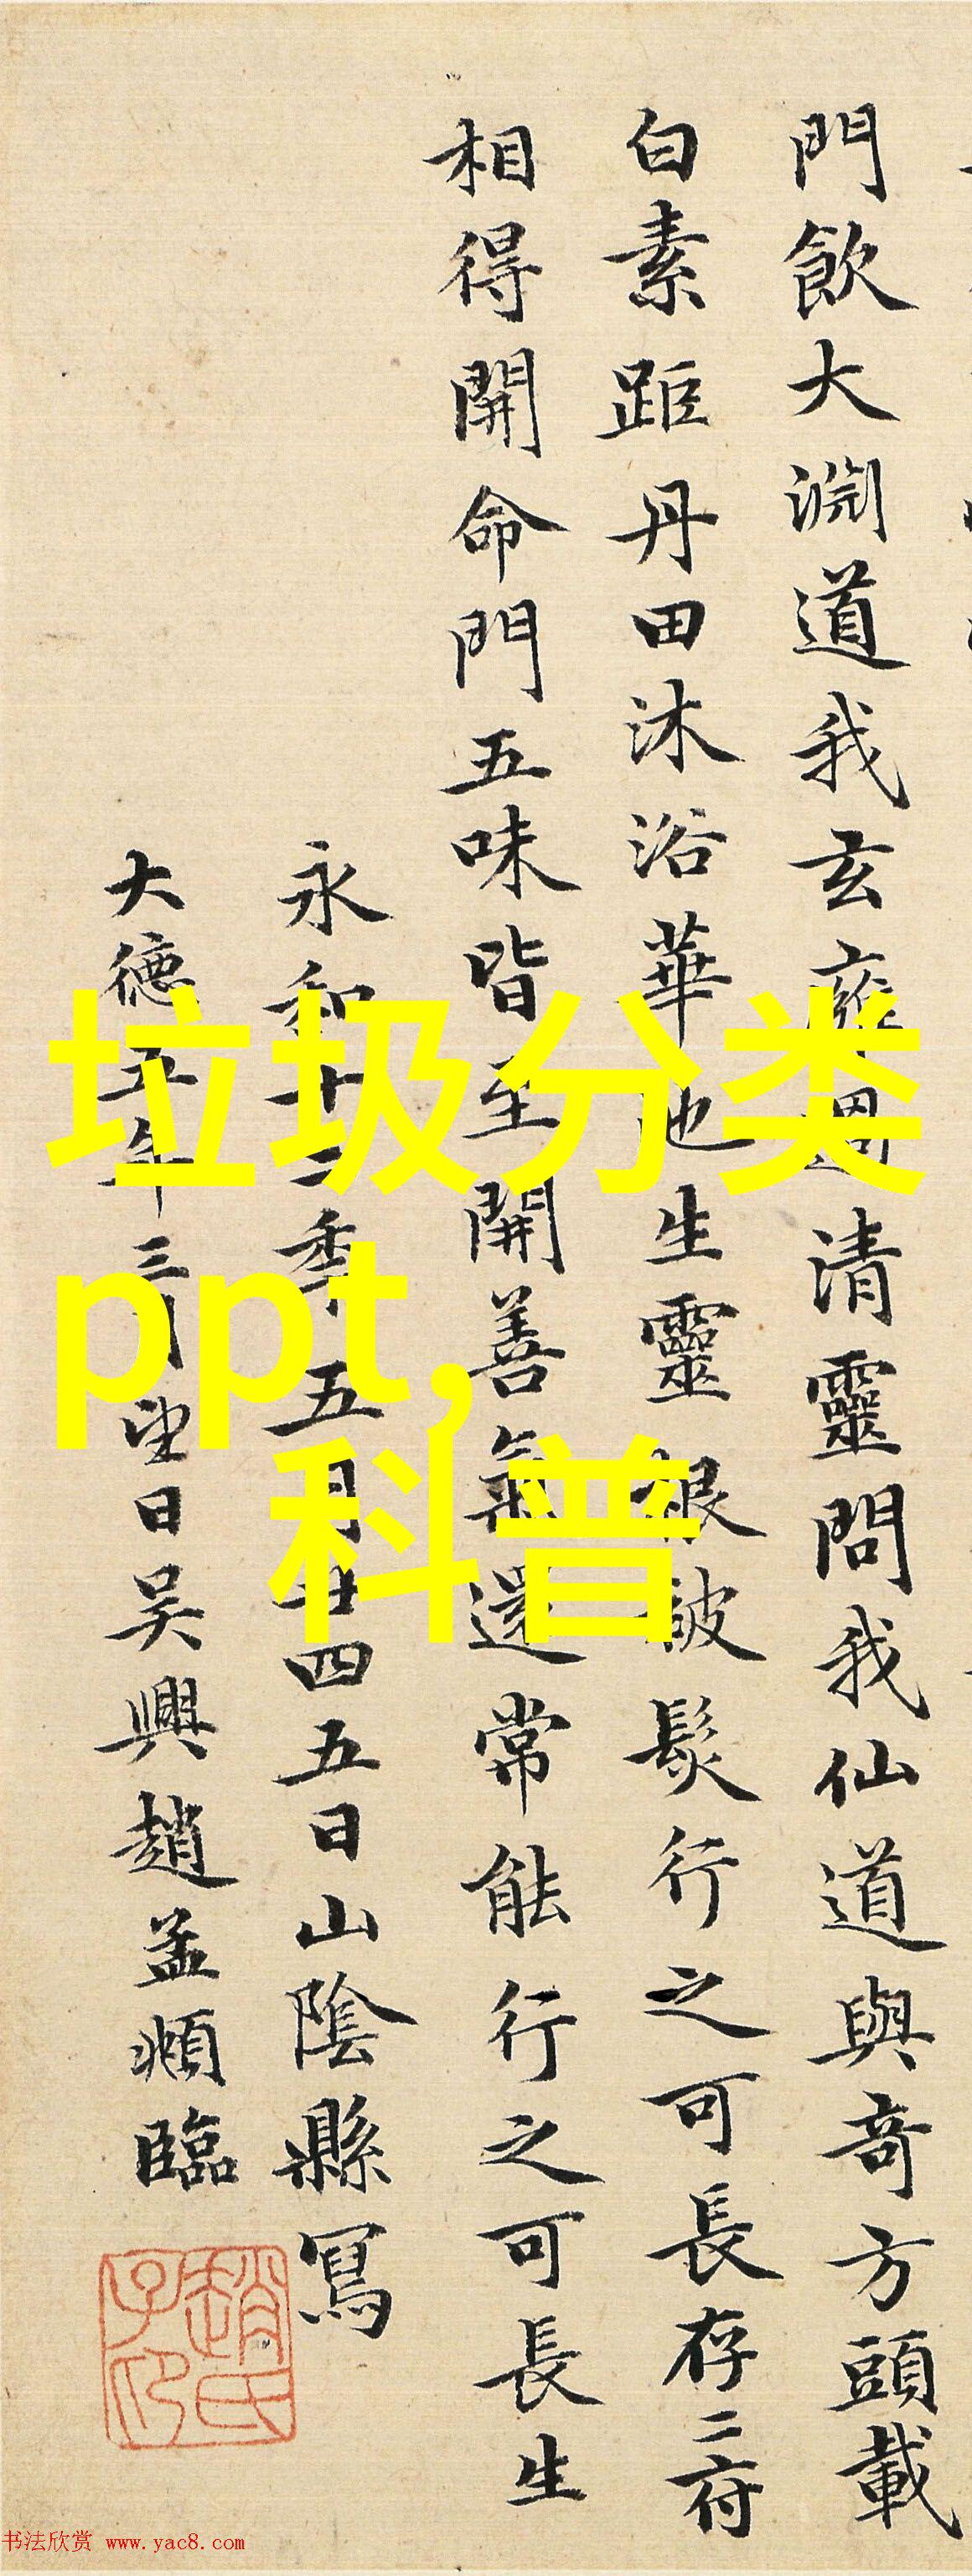 門飲大淵道我玄雍遇清靈問我仙道與竒方頭載
白素距丹田沐浴華池生靈根被髮行之可長存二府
相得開命門五味皆至開善氣還常能行之可長生
永和十二秊五月廿四五日山陰縣寫
大德五年三月望日吳興趙孟頫臨
趙氏子昂
垃圾分类
ppt,
科普
书法欣赏 www.yac8.com